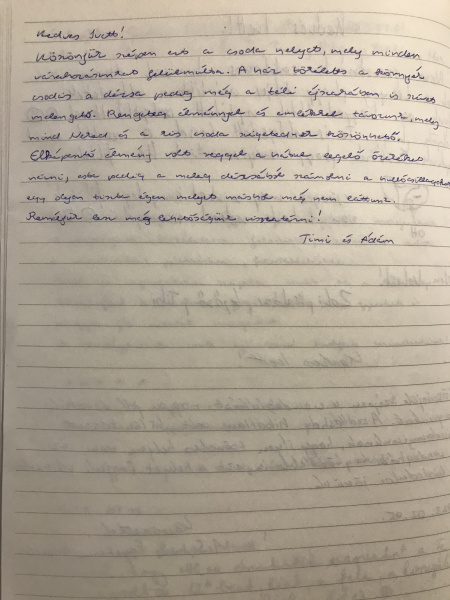 Kedves Judit!
Köszönjük szépen ezt a csoda helyet, mely minden
várakozásunkat felülmúlta. A ház tökéletes a környék
csodás a dézsa pedig még a téli éjszakában is
melengető. Rengeteg élménnyel és emlékkel távozunk, mely
mind Neked és a kis csoda szigetednek köszönhető.
Elképesztő élmény volt reggel a háznál legelő őzeket
nézni, este pedig a meleg dézsából számolni a hullócsillagokat
egy olyan tiszta égen melyet máshol még nem láttunk.
Reméljük lesz még lehetőségünk visszatérni!
Timi és Ádám